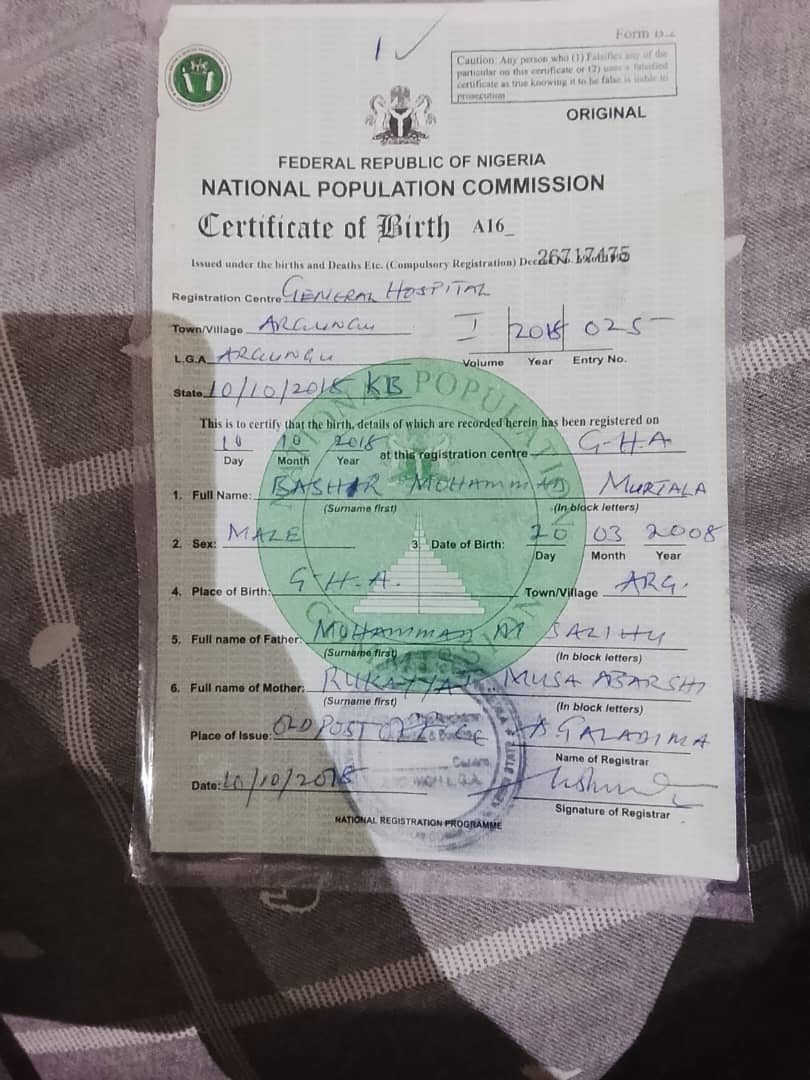 1 ✓
Form B.2
Caution: Any person who (1) Falsifies any of the
particular on this certificate or (2) uses a falsified
certificate as true knowing it to be false is liable to
prosecution
ORIGINAL
FEDERAL REPUBLIC OF NIGERIA
NATIONAL POPULATION COMMISSION
Certificate of Birth A16_
26717475
Issued under the births and Deaths Etc. (Compulsory Registration)
Registration Centre GENERAL HOSPITAL
Town/Village ARGUNGU
I 2018 025
L.G.A ARGUNGU
Volume Year Entry No.
State 10/10/2018 KB
This is to certify that the birth, details of which are recorded herein has been registered on
10 10 2018 at this registration centre G-H-A
Day Month Year
1. Full Name: BASHAR MOHAMMAD MURTALA
(Surname first) (In block letters)
2. Sex: MALE 3. Date of Birth: 20 03 2008
Day Month Year
4. Place of Birth: G-H-A. Town/Village ARG.
5. Full name of Father: MOHAMMAD M SALIHU
(Surname first) (In block letters)
6. Full name of Mother: RUKAYYAT MUSA ABARSHI
(Surname first) (In block letters)
Place of Issue: OLD POST OFFICE A GALADIMA
Name of Registrar
Date: 10/10/2018
Signature of Registrar
NATIONAL REGISTRATION PROGRAMME
NATIONAL POPULATION COMMISSION